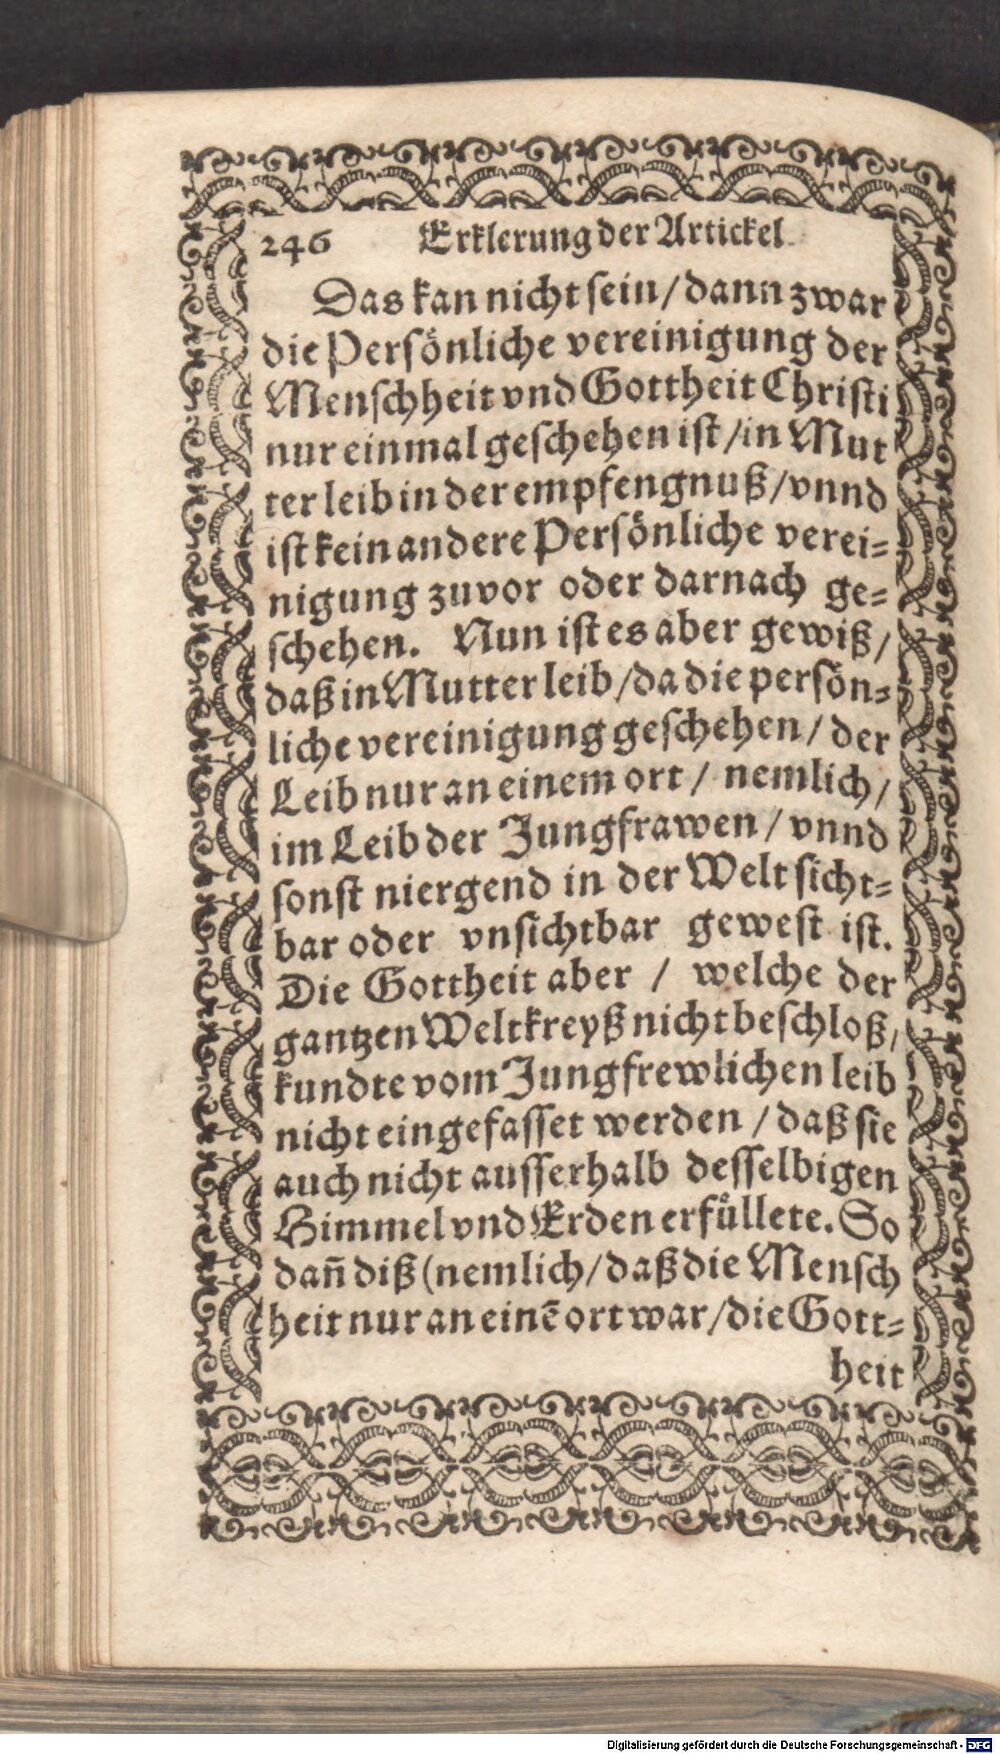 246 Erklerung der Artickel
Das kan nicht sein / dann zwar
die Persönliche vereinigung der
Menschheit vnd Gottheit Christi
nur einmal geschehen ist / in Mut
ter leib in der empfengnuß / vnnd
ist kein andere Persönliche verei=
nigung zuvor oder darnach ge=
schehen. Nun ist es aber gewiß /
daß in Mutter leib / da die persön=
liche vereinigung geschehen / der
Leib nur an einem ort / nemlich /
im Leib der Jungfrawen / vnnd
sonst niergend in der Welt sicht=
bar oder vnsichtbar gewest ist.
Die Gottheit aber / welche der
gantzen Weltkreyß nicht beschloß /
kundte vom Jungfrewlichen leib
nicht eingefasset werden / daß sie
auch nicht ausserhalb desselbigen
Himmel vnd Erden erfüllete. So
dañ diß (nemlich / daß die Mensch
heit nur an einẽ ort war / die Gott=
heit
Digitalisierung gefördert durch die Deutsche Forschungsgemeinschaft - DFG